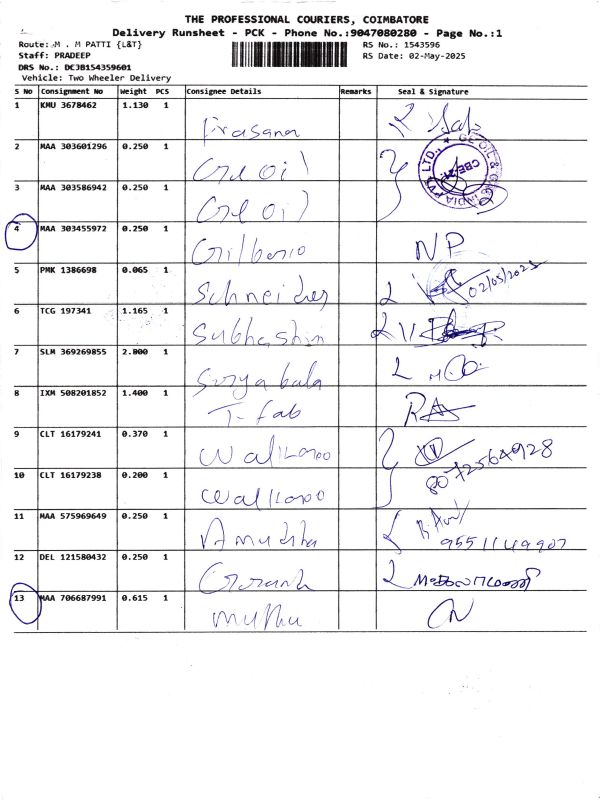 THE PROFESSIONAL COURIERS, COIMBATORE
Delivery Runsheet - PCK - Phone No.:9047080280 - Page No.:1
Route: M . M PATTI {L&T}
RS No.: 1543596
Staff: PRADEEP
RS Date: 02-May-2025
DRS No.: DCJB154359601
Vehicle: Two Wheeler Delivery
S No Consignment No Weight PCS Consignee Details Remarks Seal & Signature
1 KMU 3678462 1.130 1 Prasana
2 MAA 303601296 0.250 1 Ge oil
3 MAA 303586942 0.250 1 Ge oil
4 MAA 303455972 0.250 1 NP
5 PMK 1386698 0.065 1 Schneider 02/05/2025
6 TCG 197341 1.165 1 Subhashini
7 SLM 369269855 2.800 1 Surya bala
8 IXM 508201852 1.400 1 T-fab
9 CLT 16179241 0.370 1 8072564928
10 CLT 16179238 0.200 1
11 MAA 575969649 0.250 1 Amudha
12 DEL 121580432 0.250 1
13 MAA 706687991 0.615 1 Muthu